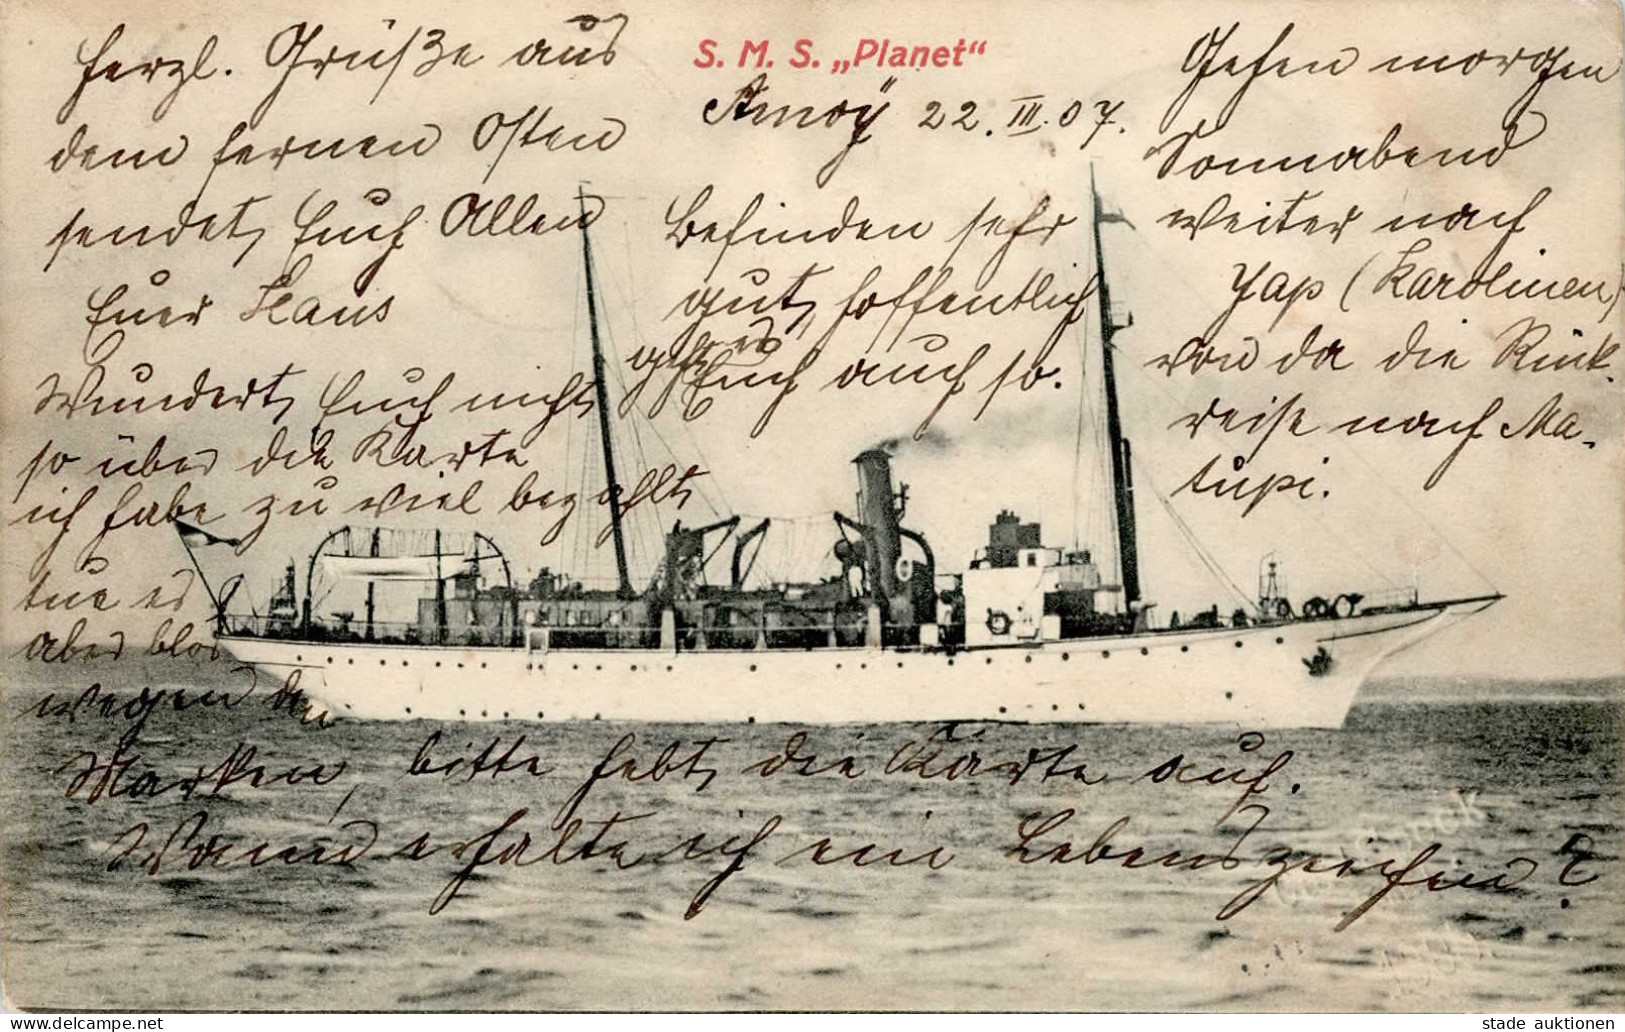 S. M. S. „Planet“
Amoÿ 22. III. 07.
Herzl. Grüße aus
dem fernen Osten
sendet Euch Allen
Euer Hans
Wundert Euch nicht
so über die Karte
ich habe zu viel bezahlt
tue es
aber blos
wegen den
Marken, bitte hebt die Karte auf.
Wann erhalte ich ein Lebenszeichen?
Befinden sehr
gut, hoffentlich
geht es
Euch auch so.
Gehen morgen
Sonnabend
weiter nach
Yap (Karolinen)
von da die Rück-
reise nach Ma-
tupi.
www.delcampe.net
stade auktionen